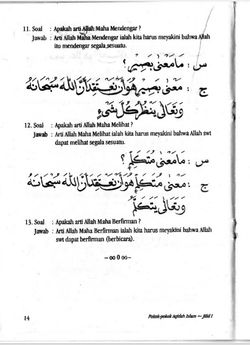 11. Soal : Apakah arti Allah Maha Mendengar ?
Jawab : Arti Allah Maha Mendengar ialah kita harus meyakini bahwa Allah
itu mendengar segala sesuatu.
س : مَامَعْنَى بَصِيْرٍ؟
ج : مَعْنَى بَصِيْرٍ هُوَ أَنْ نَعْتَقِدَ أَنَّ اللهَ سُبْحَانَهُ
وَتَعَالَى يَنْظُرُ كُلَّ شَيْءٍ
12. Soal : Apakah arti Allah Maha Melihat ?
Jawab : Arti Allah Maha Melihat ialah kita harus meyakini bahwa Allah swt
dapat melihat segala sesuatu.
س : مَامَعْنَى مُتَكَلِّمٍ؟
ج : مَعْنَى مُتَكَلِّمٍ هُوَ أَنْ نَعْتَقِدَ أَنَّ اللهَ سُبْحَانَهُ
وَتَعَالَى يَتَكَلَّمُ
13. Soal : Apakah arti Allah Maha Berfirman ?
Jawab : Arti Allah Maha Berfirman ialah kita harus meyakini bahwa Allah
swt dapat berfirman (berbicara).
— oo 0 oo —
14
Pokok-pokok Aqidah Islam — Jilid I